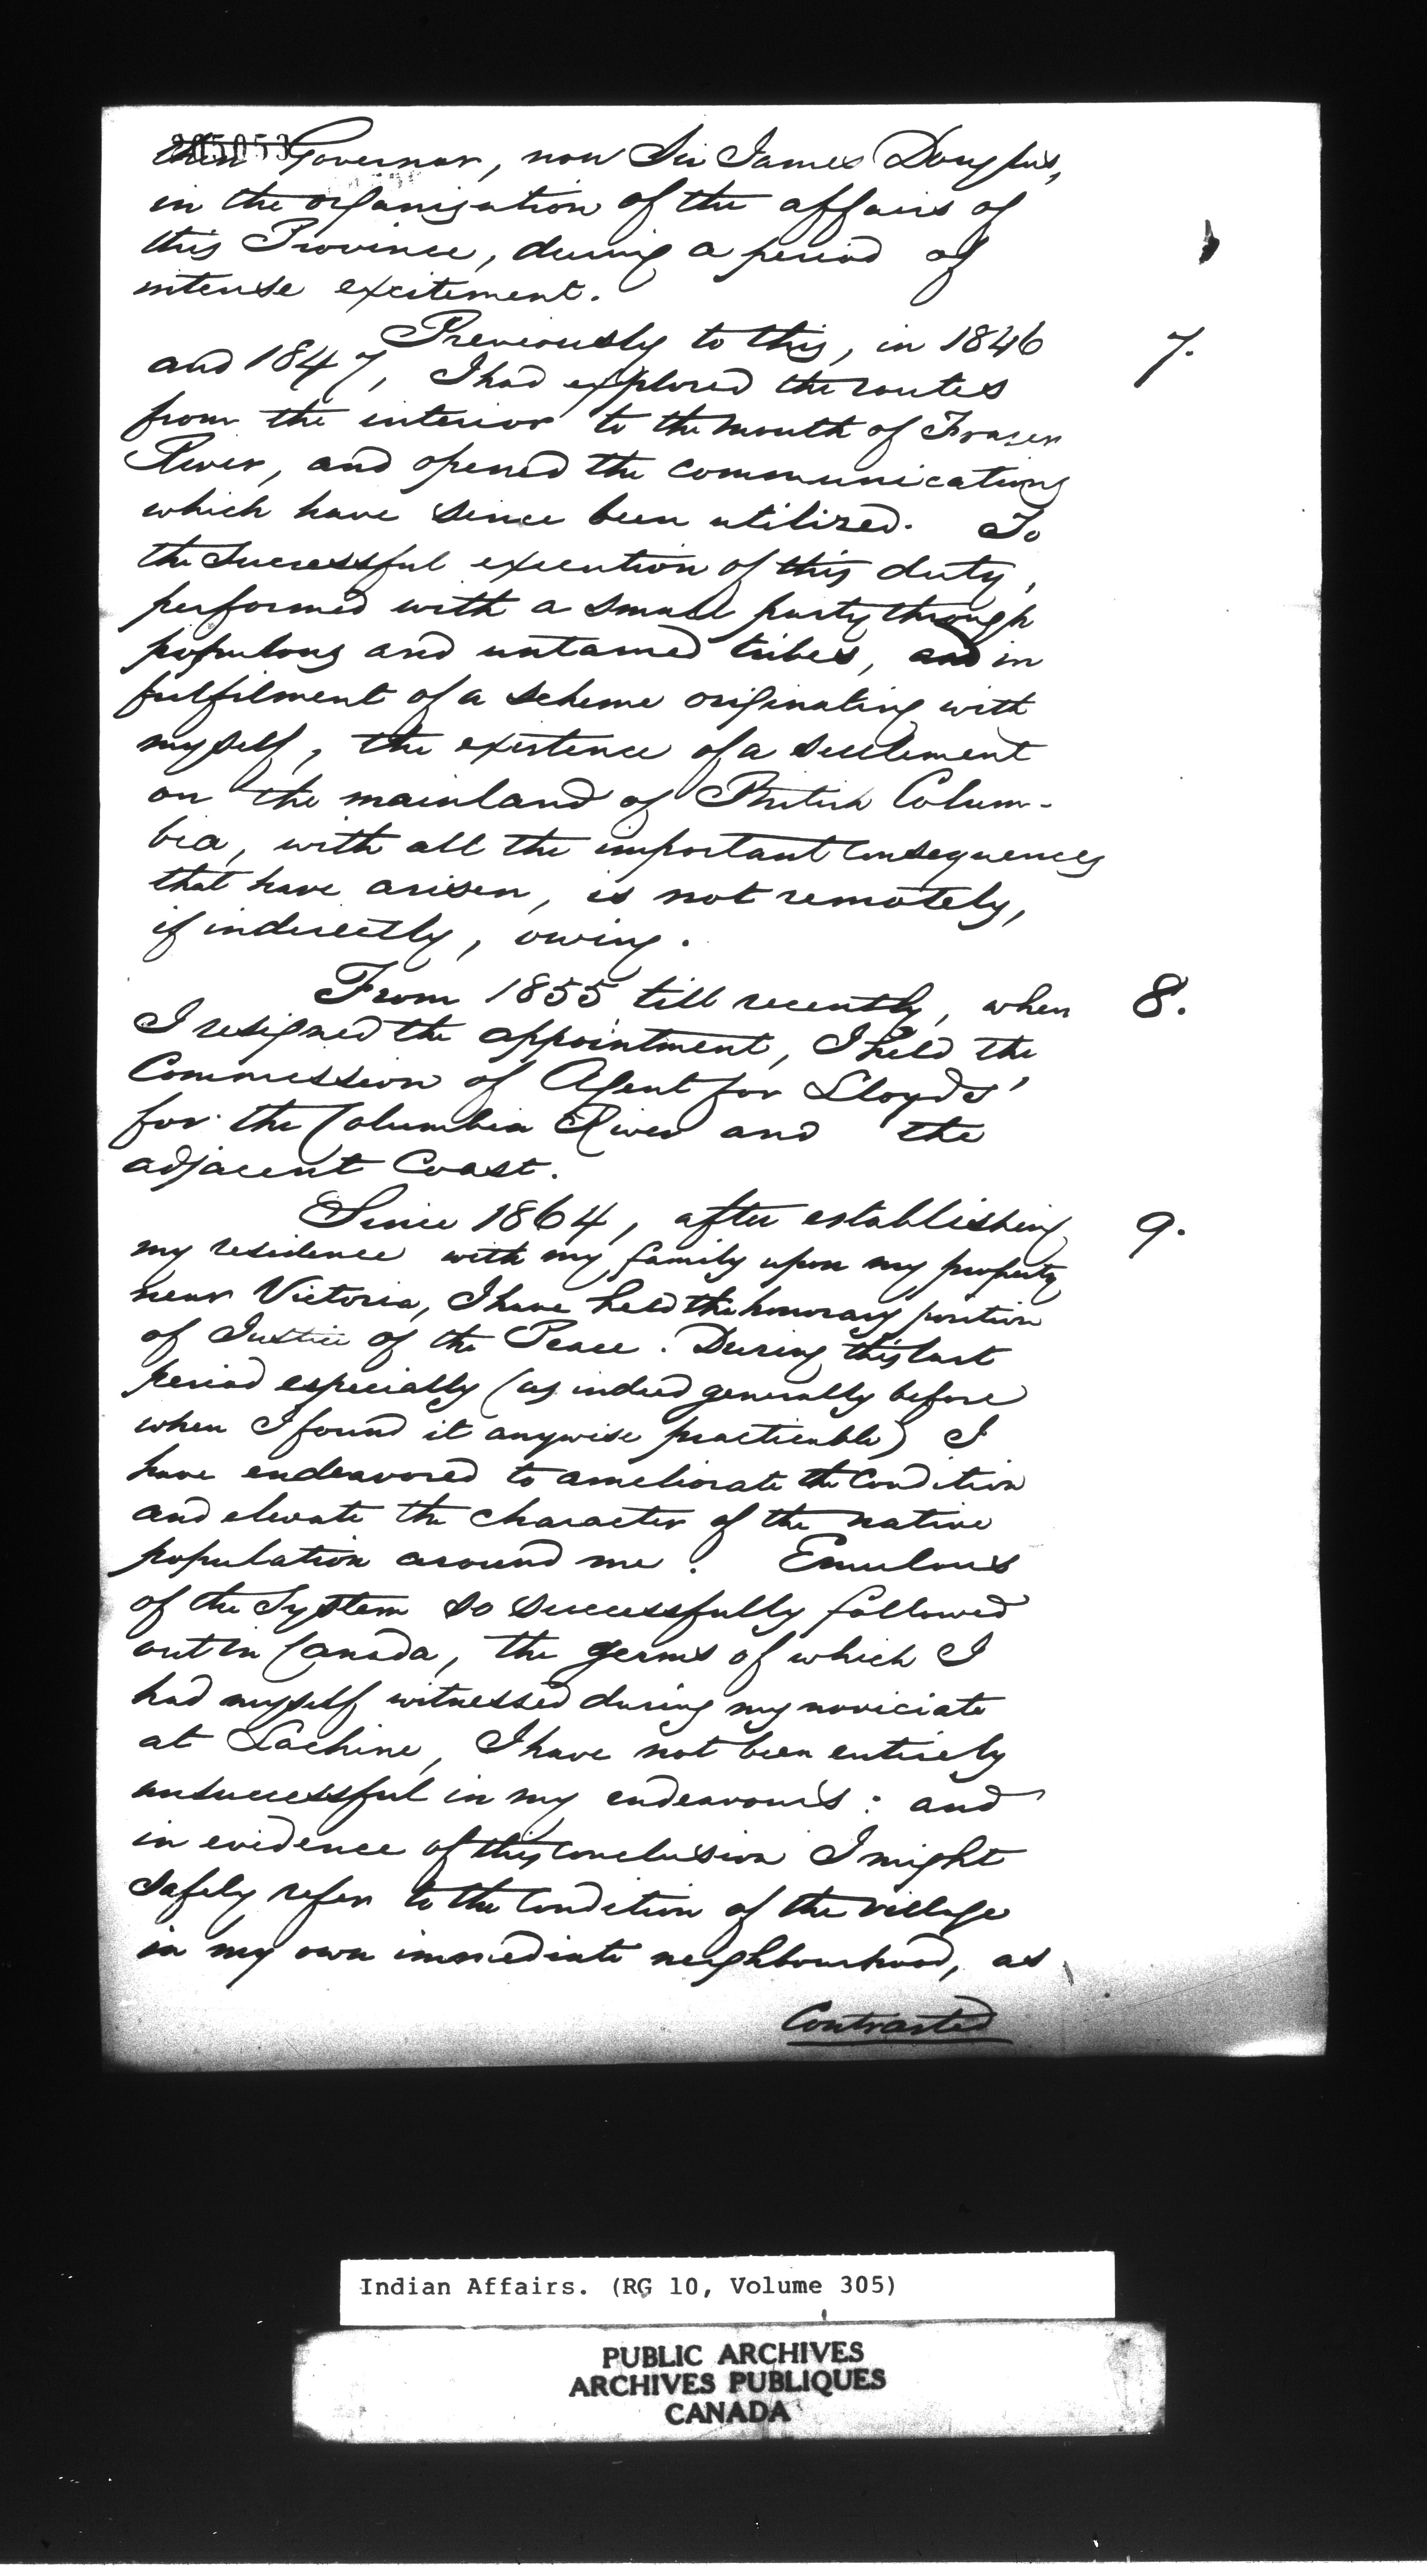 205053
then Governor, now Sir James Douglas,
in the organization of the affairs of
this Province, during a period of
intense excitement.
Previously to this, in 1846 7.
and 1847, I had explored the routes
from the interior to the mouth of Fraser
River, and opened the communications
which have since been utilized. To
the successful execution of this duty,
performed with a small party through
populous and untamed tribes, and in
fulfilment of a scheme originating with
myself, the existence of a settlement
on the mainland of British Colum-
bia, with all the important consequences
that have arisen, is not remotely,
if indirectly, owing.
From 1855 till recently, when 8.
I resigned the appointment, I held the
Commission of Agent for Lloyds'
for the Columbia River and the
adjacent Coast.
Since 1864, after establishing 9.
my residence with my family upon my property
near Victoria, I have held the honorary position
of Justice of the Peace. During this last
period especially (as indeed generally before
when I found it anywise practicable) I
have endeavored to ameliorate the condition
and elevate the character of the native
population around me. Emulous
of the System so successfully followed
out in Canada, the germs of which I
had myself witnessed during my noviciate
at Lachine, I have not been entirely
unsuccessful in my endeavours: and
in evidence of this conclusion I might
safely refer to the condition of the village
in my own immediate neighbourhood, as
Contrasted
Indian Affairs. (RG 10, Volume 305)
PUBLIC ARCHIVES
ARCHIVES PUBLIQUES
CANADA